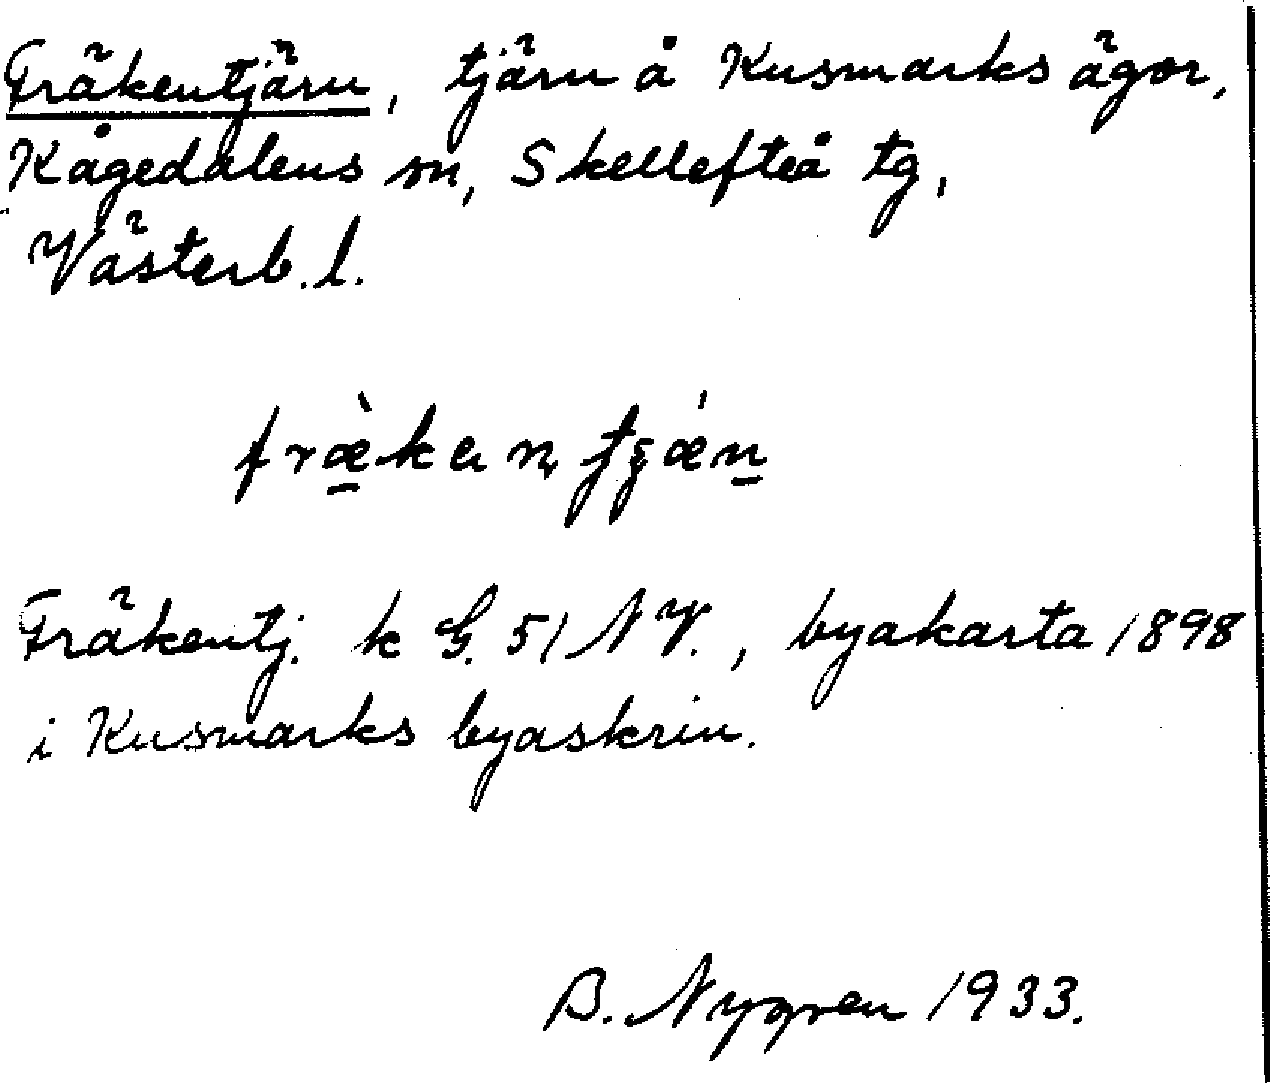 Fräkentjärn, tjärn å Kusmarks ägor,
Kågedalens sn, Skellefteå tg,
Västerb. l.
Fräkentj. k G. 51 NV., byakarta 1898
i Kusmarks byaskrin.
B. Nygren 1933.